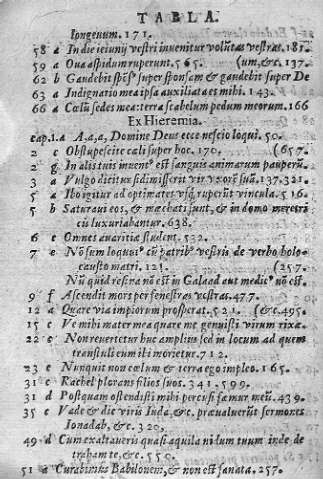 TABLA.
longeuum. 171.
58 a In die ieiunij vestri inuenitur volũtas vestras. 185.
59 a Oua aspidum ruperunt. 565. (um, &c. 137.
62 b Gaudebit spõs' super sponsam & gaudebit super De
63 a Indignatio mea ipsa auxiliata et mihi. 143.
66 a Cœlũ sedes mea: terra scabellum pedum meorum. 166
Ex Hieremia.
cap. 1. a A, a, a, Domine Deus ecce nescio loqui. 50.
2 c Obstupescite cæli super hoc. 170. (657.
2 g In alis tuis inuent' est sanguis animarum pauperũ.
3 a Vulgo dicitur si dimisserit vir vxorẽ suã. 137. 321.
5 a Ibo igitur ad optimates vsq; ruperũt vincula. 516.
5 b Saturaui eos, & mœchati sunt, & in domo meretri
cis luxuriabantur. 638.
6 c Omnes auaritiæ student. 532.
7 e Nõ sum loquut' cũ patrib' vestris de verbo holo-
causto matri. 121. (257.
Nũ quid resina nõ est in Galaad aut medic' nõ est.
9 f Ascendit mors per fenestras vestras. 477.
12 a Quare via impiorum prosperat. 521. (&c. 495.
15 c Ve mihi mater mea quare me genuisti virum rixæ.
22 c Non reuertetur huc amplius sed in locum ad quem
transtuli eum ibi morietur. 712.
23 e Nunquit non cœlum & terra ego impleo. 165.
31 c Rachel plorans filios suos. 341. 599.
31 d Postquam ostendisti mihi percusi fæmur meũ. 439.
35 c Vade & dic viris Iuda, &c. præualuerũt sermones
Ionadab, &c. 320.
49 d Cum exaltaueris quasi aquila nidum tuum inde de-
trabam te, &c. 550.
51 a Curabimus Babilonem, & non est sanata. 257.